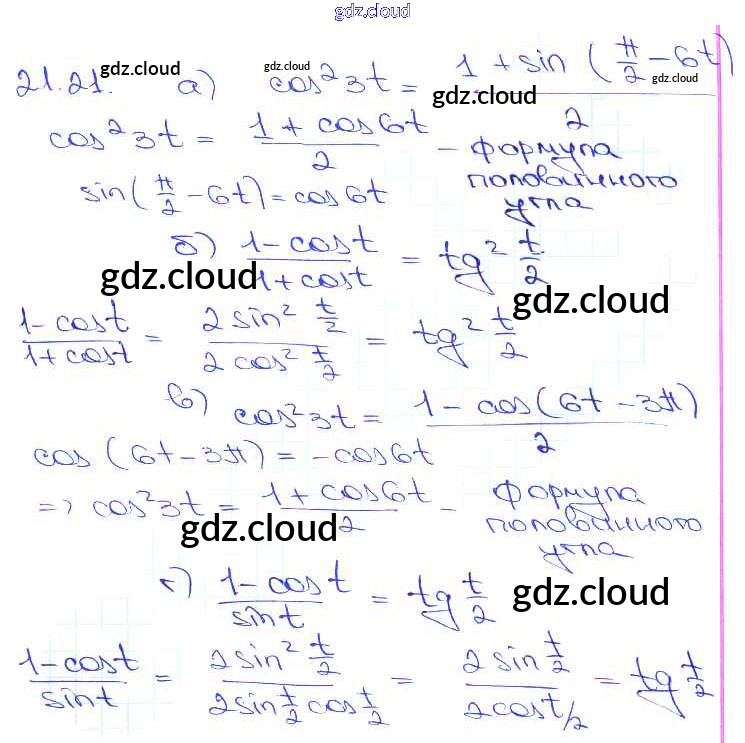 gdz.cloud
21.21. gdz.cloud а) gdz.cloud cos² 3t = (1 + sin (π/2 − 6t))/2 gdz.cloud gdz.cloud
cos² 3t = (1 + cos 6t)/2 – формула
половинного
угла
sin(π/2 − 6t) = cos 6t
б) (1 − cos t)/(1 + cos t) = tg² t/2
gdz.cloud gdz.cloud
(1 − cos t)/(1 + cos t) = (2 sin² t/2)/(2 cos² t/2) = tg² t/2
в) cos² 3t = (1 − cos(6t − 3π))/2
cos (6t − 3π) = −cos 6t
=> cos² 3t = (1 + cos 6t)/2 – формула
половинного
угла
gdz.cloud
г) (1 − cos t)/(sin t) = tg t/2 gdz.cloud
(1 − cos t)/(sin t) = (2 sin² t/2)/(2 sin t/2 cos t/2) = (2 sin t/2)/(2 cos t/2) = tg t/2